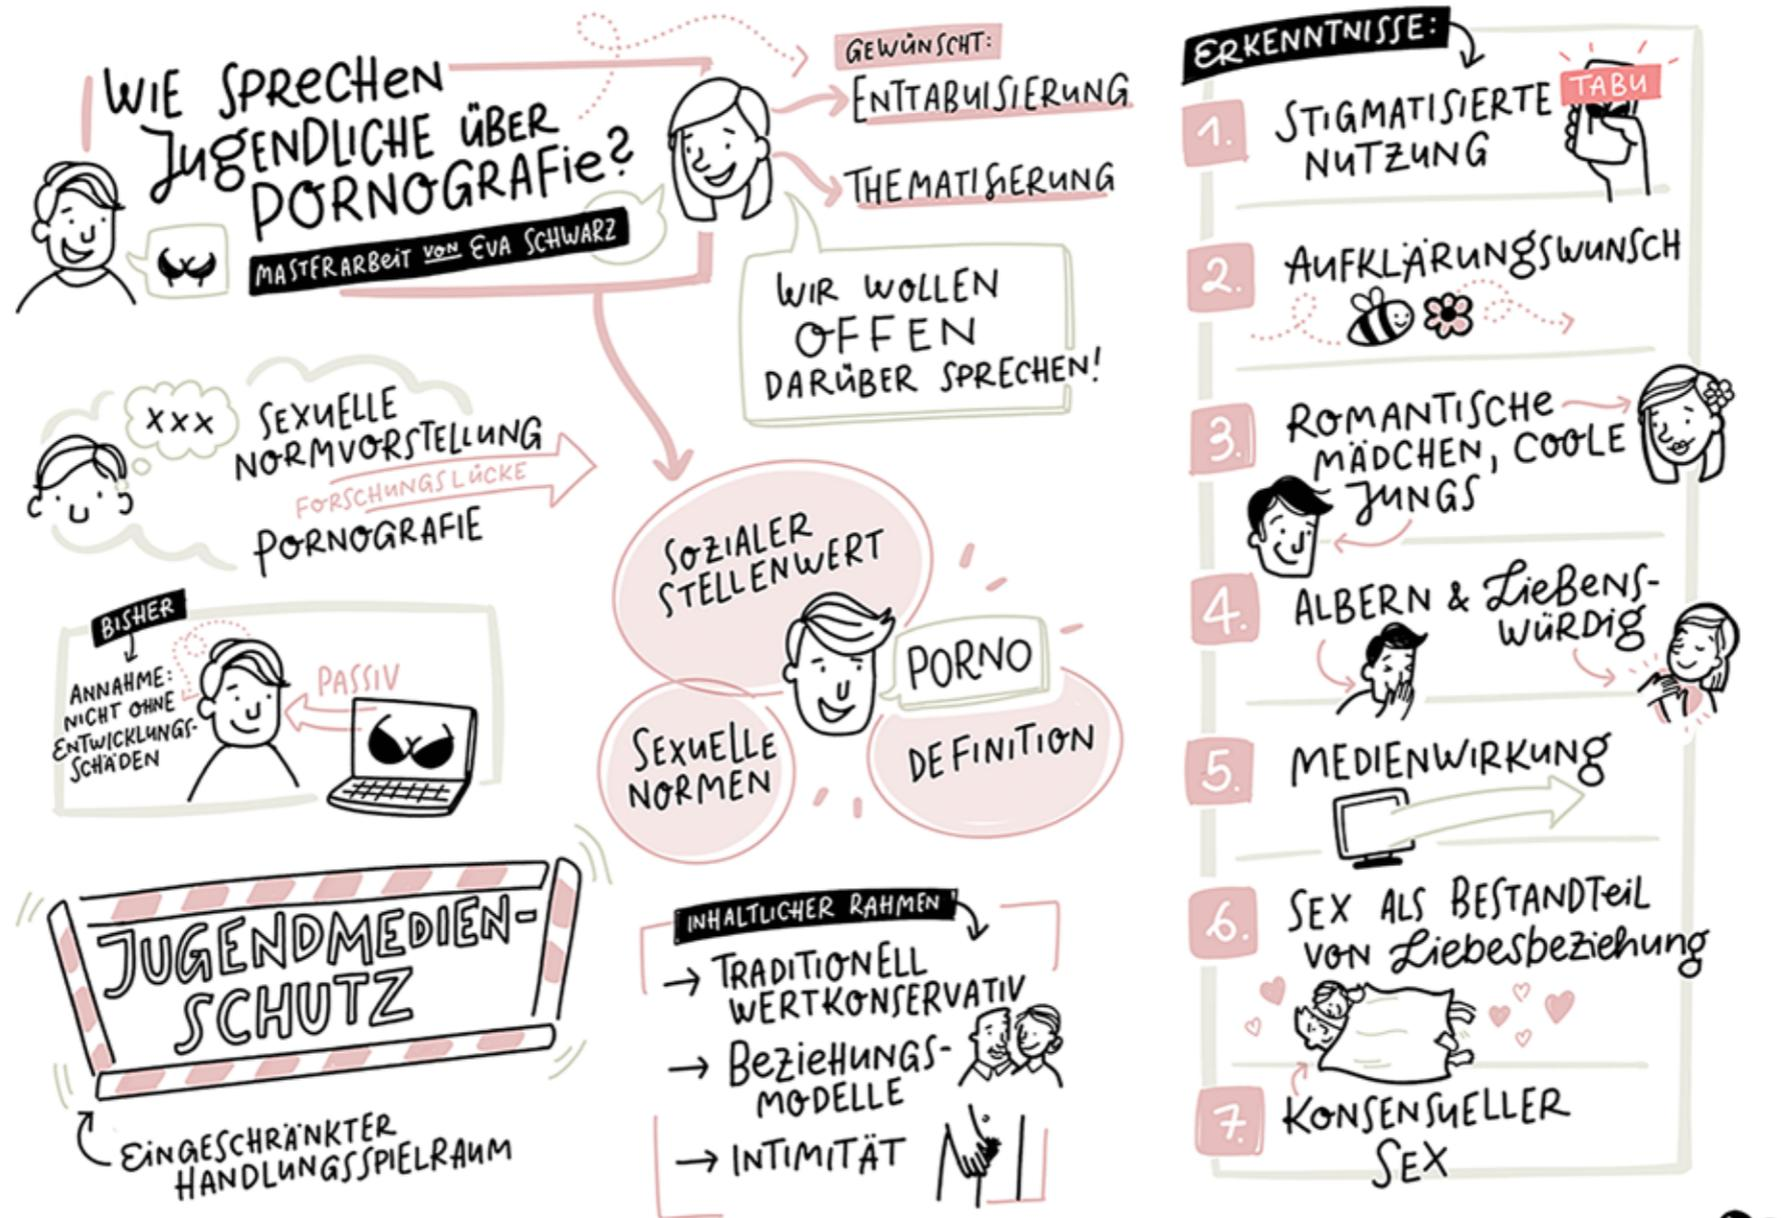 WIE SPRECHEN
JUGENDLICHE ÜBER
PORNOGRAFIE?
MASTERARBEIT VON EVA SCHWARZ
GEWÜNSCHT:
ENTTABUISIERUNG
THEMATISIERUNG
WIR WOLLEN
OFFEN
DARÜBER SPRECHEN!
XXX
SEXUELLE
NORMVORSTELLUNG
FORSCHUNGSLÜCKE
PORNOGRAFIE
BISHER
ANNAHME:
NICHT OHNE
ENTWICKLUNGS-
SCHÄDEN
PASSIV
JUGENDMEDIEN-
SCHUTZ
EINGESCHRÄNKTER
HANDLUNGSSPIELRAUM
SOZIALER
STELLENWERT
PORNO
SEXUELLE
NORMEN
DEFINITION
INHALTLICHER RAHMEN
→ TRADITIONELL
WERTKONSERVATIV
→ BEZIEHUNGS-
MODELLE
→ INTIMITÄT
ERKENNTNISSE:
1. STIGMATISIERTE
NUTZUNG
TABU
2. AUFKLÄRUNGSWUNSCH
3. ROMANTISCHE
MÄDCHEN, COOLE
JUNGS
4. ALBERN & LIEBENS-
WÜRDIG
5. MEDIENWIRKUNG
6. SEX ALS BESTANDTEIL
VON LIEBESBEZIEHUNG
7. KONSENSUELLER
SEX